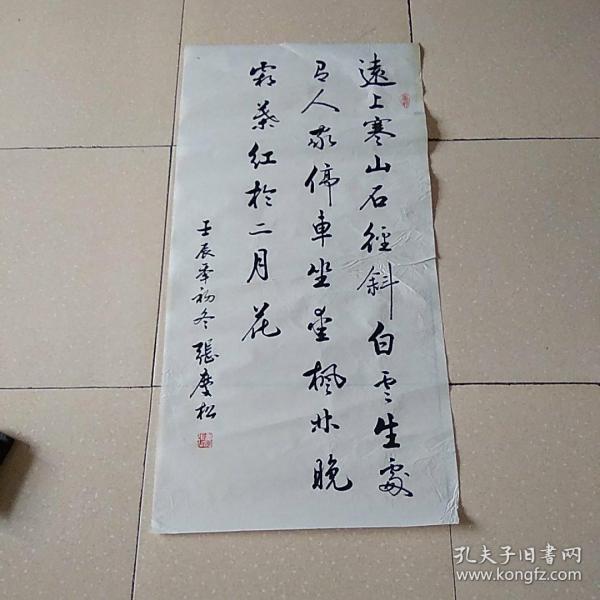 遠上寒山石徑斜白雲生處
有人家停車坐愛楓林晚
霜葉紅於二月花
壬辰年初冬 張慶松
孔夫子旧书网
www.kongfz.com